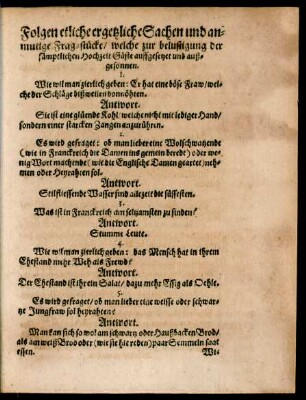 Folgen etliche ergetzliche Sachen und an-
mutige Frag-stücke/ welche zur belustigung der
sämptlichen Hochzeit Gäste auffgesetzt und auß-
gesonnen.
1.
Wie wil man zierlich geben: Er hat eine böse Fraw/ wel-
che der Schläge bißweilen vonnöhten.
Antwort.
Sie ist eine glüende Kohl/ welche nicht mit lediger Hand/
sondern einer starcken Zangen anzurühren.
2.
Es wird gefraget: ob man lieber eine Wolschwatzende
(wie in Franckreich die Damen ins gemein beredt) oder we-
nig Wort machende (wie die Englische Damen geartet) neh-
men oder Heyrahten sol.
Antwort.
Stilfliessende Wasser sind allezeit die süssesten.
3.
Was ist in Franckreich am selzamsten zu finden?
Antwort.
Stumme Leute.
4.
Wie wil man zierlich geben: das Mensch hat in ihrem
Ehestand mehr Weh als Frewd?
Antwort.
Der Ehestand ist ihr ein Salat/ dazu mehr Essig als Oehle.
5.
Es wird gefraget/ ob man lieber eine weisse oder schwar-
tze Jungfraw sol heyrahten?
Antwort.
Man kan sich so wol am schwartz oder Haußbacken Brod/
als am weiß Broo oder (wie sie hie reden) paar Semmeln saat
essen.
Wi-